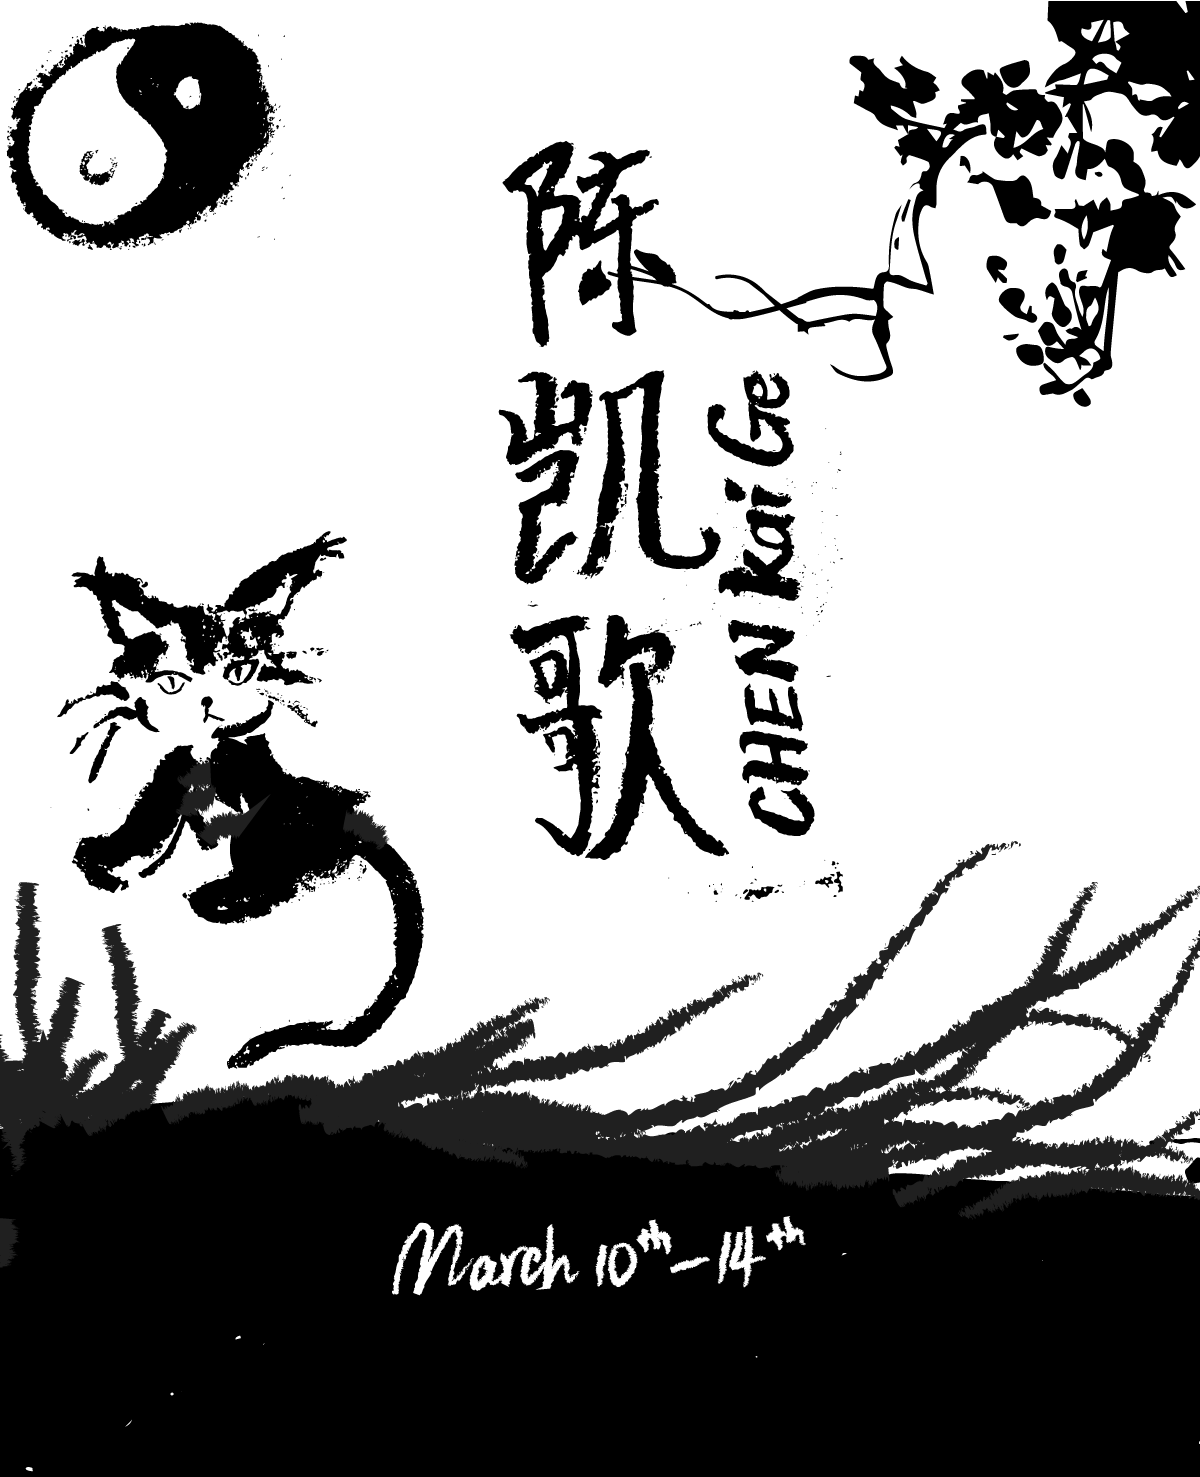 陈凯歌
CHEN Kai Ge
March 10th – 14th